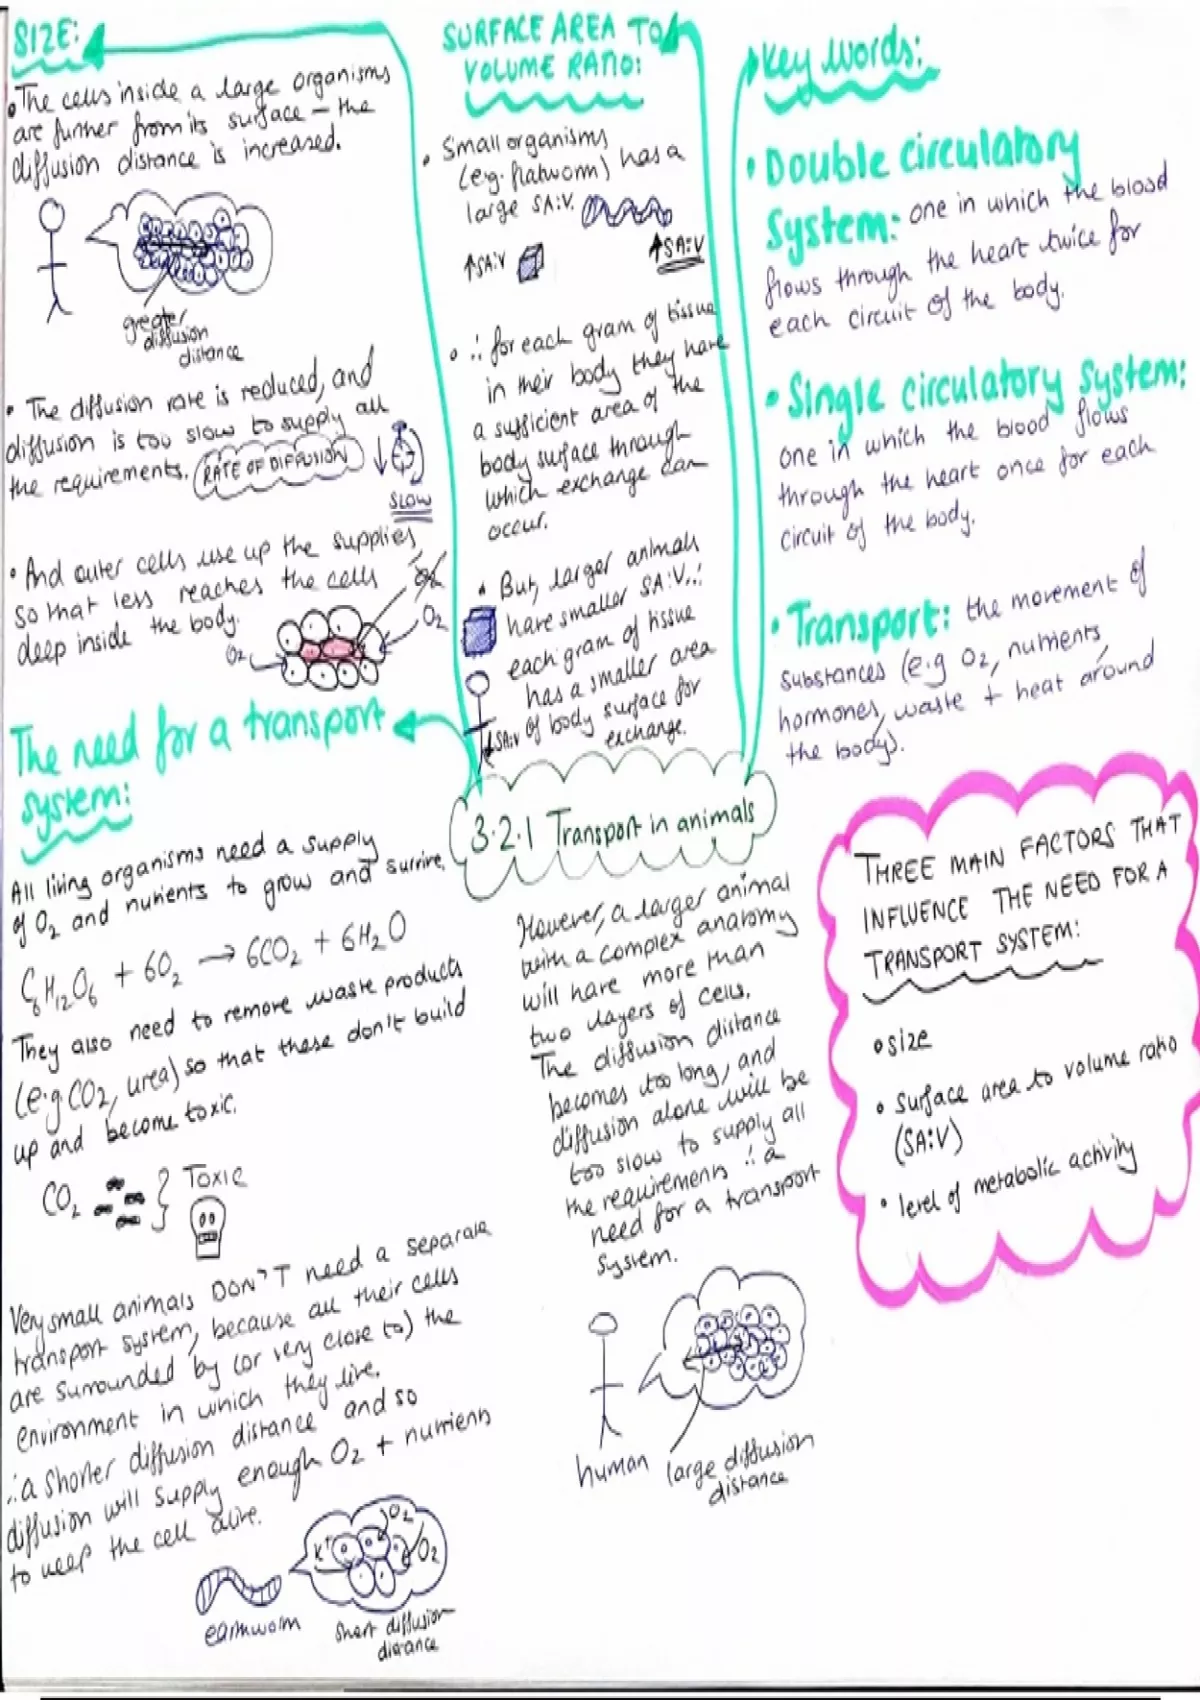 SIZE:
• The cells inside a large organisms
are further from its surface – the
diffusion distance is increased.
greater
diffusion
distance
• The diffusion rate is reduced, and
diffusion is too slow to supply all
the requirements. RATE OF DIFFUSION ↓
SLOW
• And outer cells use up the supplies
so that less reaches the cells
deep inside the body.
O2
O2
O2
The need for a transport
system:
All living organisms need a supply
of O2 and nutrients to grow and survive.
C6H12O6 + 6O2 → 6CO2 + 6H2O
They also need to remove waste products
(e.g. CO2, urea) so that these don't build
up and become toxic.
CO2 } TOXIC
Very small animals DON'T need a separate
transport system, because all their cells
are surrounded by (or very close to) the
environment in which they live.
∴ a shorter diffusion distance and so
diffusion will supply enough O2 + nutrients
to keep the cell alive.
O2
K+
O2
earthworm
short diffusion
distance
SURFACE AREA TO
VOLUME RATIO:
• Small organisms
(e.g. flatworm) has a
large SA:V.
↑SA:V
↑SA:V
• ∴ for each gram of tissue
in their body they have
a sufficient area of the
body surface through
which exchange can
occur.
• But, larger animals
have smaller SA:V ∴
each gram of tissue
has a smaller area
of body surface for
exchange.
↓SA:V
3.2.1 Transport in animals
However, a larger animal
with a complex anatomy
will have more than
two layers of cells.
The diffusion distance
becomes too long, and
diffusion alone will be
too slow to supply all
the requirements ∴ a
need for a transport
system.
human
large diffusion
distance
Key Words:
• Double circulatory
System: one in which the blood
flows through the heart twice for
each circuit of the body.
• Single circulatory system:
one in which the blood flows
through the heart once for each
circuit of the body.
• Transport: the movement of
substances (e.g O2, nutrients,
hormones, waste + heat around
the body).
THREE MAIN FACTORS THAT
INFLUENCE THE NEED FOR A
TRANSPORT SYSTEM:
• size
• surface area to volume ratio
(SA:V)
• level of metabolic activity